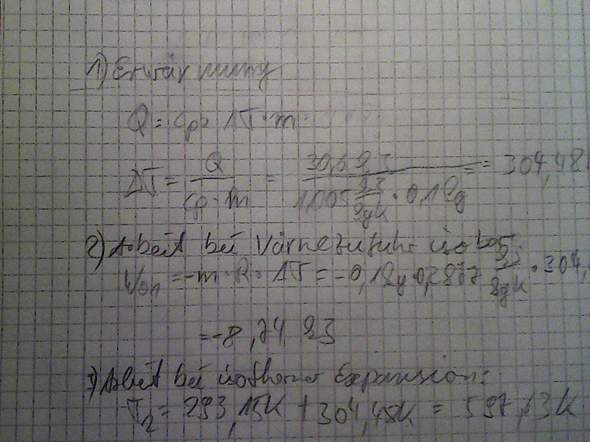 1) Erwärmung
Q = cp · ΔT · m
ΔT = Q / cp · m = 30,6 kJ / 1,005 kJ/kgK · 0,1 kg = 304,48
2) Arbeit bei Wärmezufuhr isobar:
= -m · R · ΔT = -0,1 kg · 0,287 kJ/kgK · 304,
= -8,74 kJ
3) Arbeit bei isothermer Expansion:
T2 = 293,15K + 304,48K = 597,63K